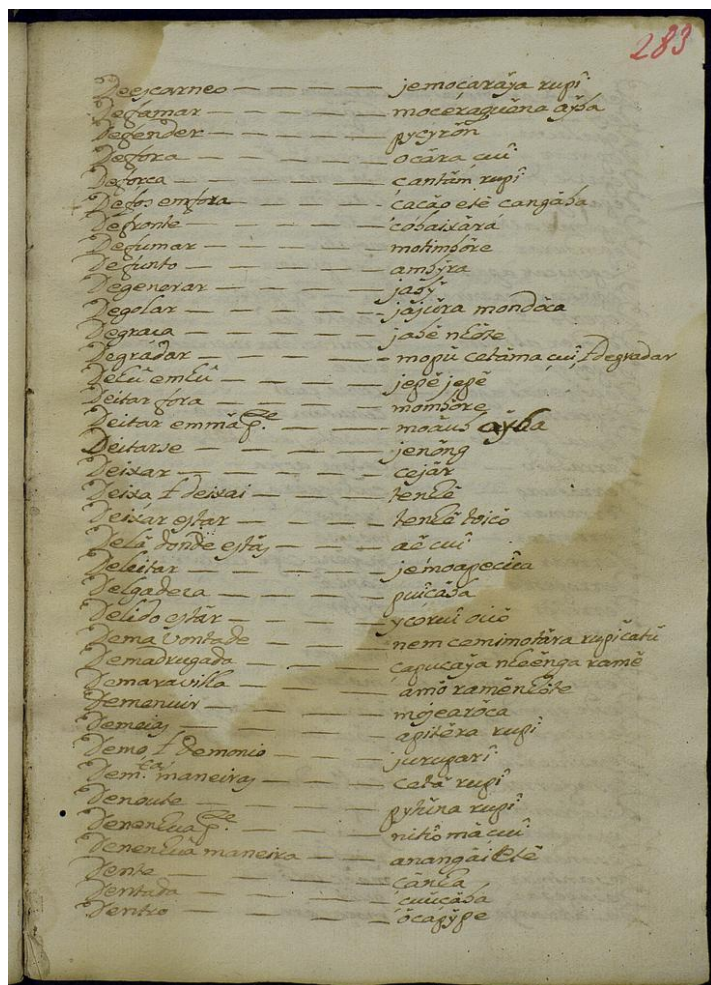 283
Deescarneo — — — — jemocarãya rupî
Defamar — — — — mocéraquêna aÿba
Defender — — — — pycyrõn
Defora — — — — ocára cuî
Deforca — — — — cantám rupî
Defos emfora — — — cacão etê cangába
Defronte — — — — cobaixará
Defumar — — — — motimbóre
Defunto — — — — ambÿra
Degenerar — — — — jabÿ
Degolar — — — — jajúra mondóca
Degraca — — — — jabé nhóte
Degradar — — — — mopú cetáma cuî, t degradar
Dehũ emhũ — — — — jepê jepê
Deitar fora — — — — mombóre
Deitar emmã p.te — — — moaub aÿba
Deitarse — — — — jenõng
Deixar — — — — cejár
Deixa t deixai — — — tenhê
Deixár estar — — — — tenhê toicô
Delá donde estás — — — aê cuî
Deleitar — — — — jemoapecîca
Delgadeza — — — — puîcába
Delido estár — — — — ycoruî oicô
Demã vontade — — — nem cemimotára rupicatú
Demadrugada — — — capucaÿa nheênga ramê
Demaravilla — — — amõ ramênhóte
Demenuir — — — — mojearóca
Demeias — — — — apitéra rupî
Demo t demonio — — — juruparî
Dem.tas maneiras — — — cetá rupî
Denoute — — — — pytúna rupî
Denenhua p.te — — — nitiô mácuî
Denenhúa maneira — — anangái Etê
Dente — — — — cánha
Dentada — — — — cuucába
Dentro — — — — ócapÿpe